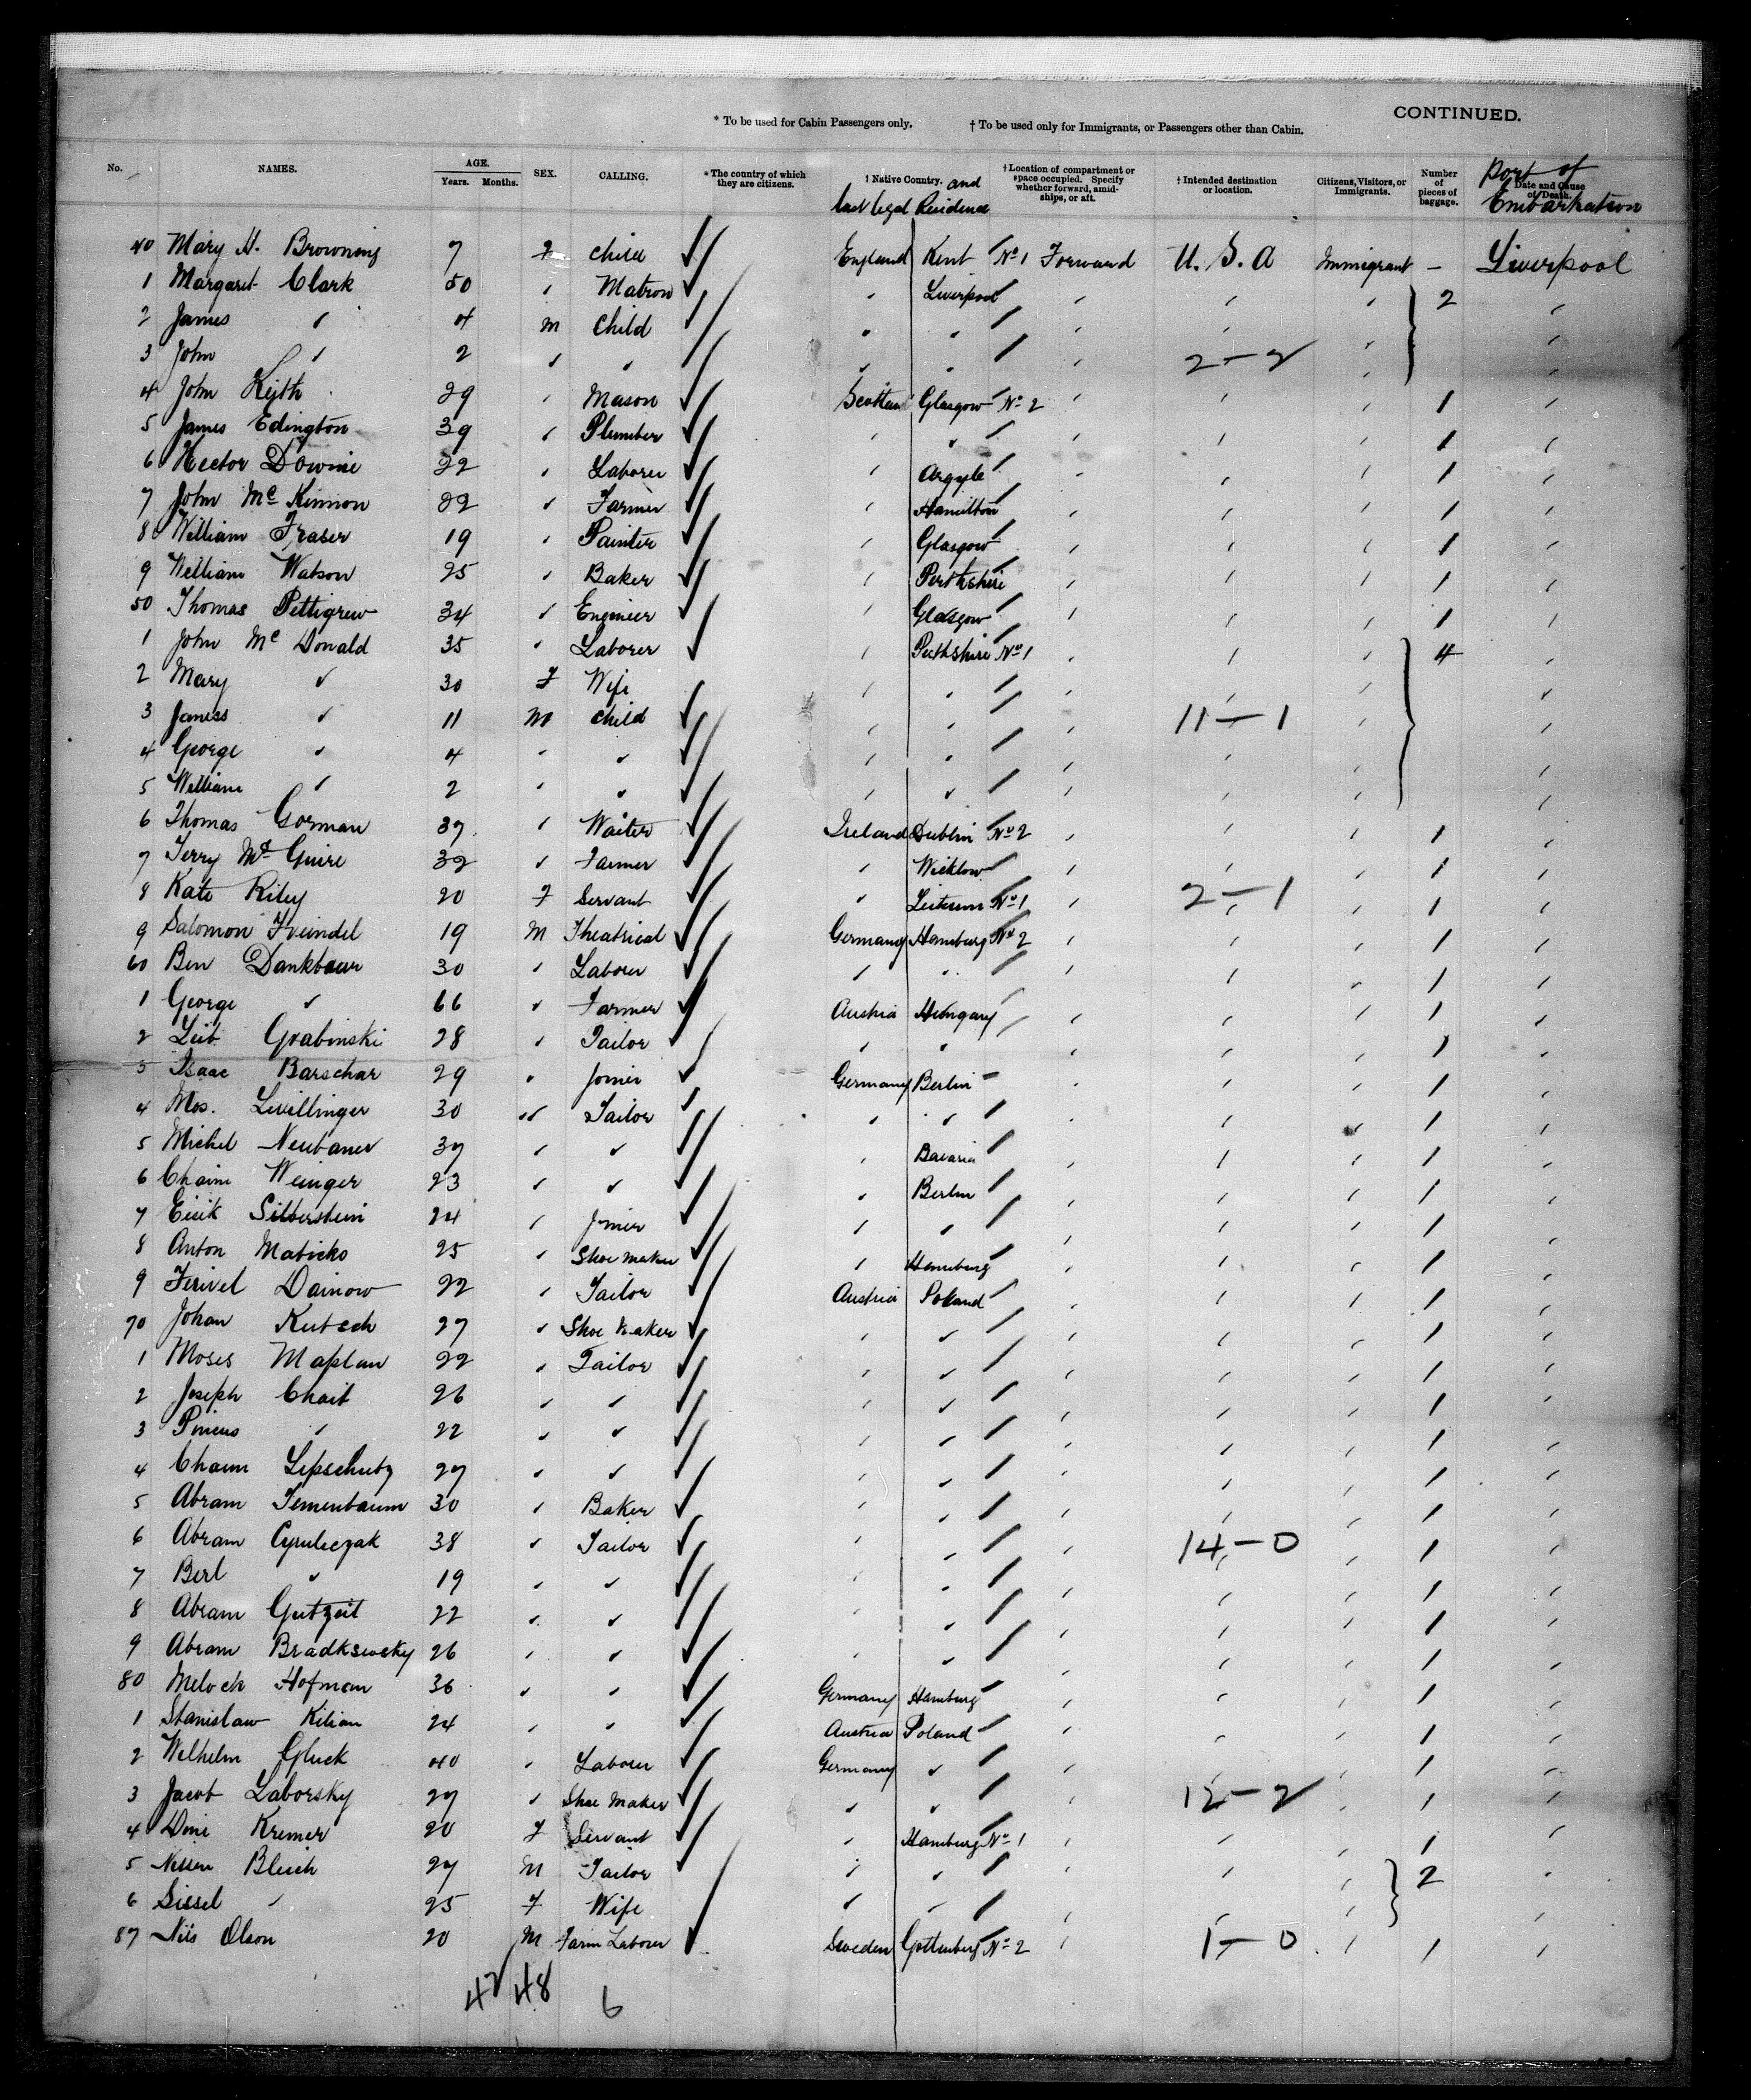 CONTINUED.
* To be used for Cabin Passengers only. † To be used only for Immigrants, or Passengers other than Cabin.
No. NAMES. AGE. Years. Months. SEX. CALLING. *The country of which they are citizens. † Native Country. and last legal Residence †Location of compartment or space occupied. Specify whether forward, amidships, or aft. † Intended destination or location. Citizens, Visitors, or Immigrants. Number of pieces of baggage. Date and Cause of Death. Port of Embarkation
40 Mary H. Browning 7 F child England Kent No 1 Forward U.S.A Immigrant - Liverpool
1 Margaret Clark 50 " Matron " Liverpool " " " 2 "
2 James " 4 M Child " " " " " "
3 John " 2 " " " " " 2-2 " "
4 John Keith 29 " Mason Scotland Glasgow No 2 " " " 1 "
5 James Edington 39 " Plumber " " " " " 1 "
6 Hector Downie 22 " Laborer " Argyle " " " 1 "
7 John Mc Kinnon 22 " Farmer " Hamilton " " " 1 "
8 William Fraser 19 " Painter " Glasgow " " " 1 "
9 William Watson 25 " Baker " Perthshire " " " 1 "
50 Thomas Pettigrew 34 " Engineer " Glasgow " " " 1 "
1 John Mc Donald 35 " Laborer " Perthshire No 1 " " " 4 "
2 Mary " 30 F Wife " " " " " "
3 James " 11 M child " " " 11-1 " "
4 George " 4 " " " " " " " "
5 William " 2 " " " " " " " "
6 Thomas Gorman 37 " Waiter Ireland Dublin No 2 " " " 1 "
7 Terry Mc Guire 32 " Farmer " Wicklow " " " 1 "
8 Kate Riley 20 F Servant " Leitrim No 1 " 2-1 " 1 "
9 Salomon 19 M Theatrical Germany Hamburg No 2 " " " 1 "
60 Ben Dankbaur 30 " Laborer " " " " " 1 "
1 George " 66 " Farmer Austria Hungary " " " 1 "
2 Leib Grabinski 28 " Tailor " " " " " 1 "
3 Isaac Barschar 29 " Joiner Germany Berlin " " " 1 "
4 Mos. Livillinger 30 " Tailor " " " " " 1 "
5 Michel Neubauer 37 " " " Bavaria " " " 1 "
6 Chaim Weinger 23 " " " Berlin " " " 1 "
7 Eisik Silberstein 24 " Joiner " " " " " 1 "
8 Anton Maticks 25 " Shoe maker " Hamburg " " " 1 "
9 Dainow 22 " Tailor Austria Poland " " " 1 "
70 Johan Kutsch 27 " Shoe maker " " " " " 1 "
1 Moses Maplan 22 " Tailor " " " " " 1 "
2 Joseph Chait 26 " " " " " " " 1 "
3 Pincus " 22 " " " " " " " 1 "
4 Chaim Lipschutz 27 " " " " " " " 1 "
5 Abram 30 " Baker " " " " " 1 "
6 Abram Cyruliczak 38 " Tailor " " " 14-0 " 1 "
7 Berl " 19 " " " " " " " 1 "
8 Abram Gutzeit 22 " " " " " " " 1 "
9 Abram Bradksiwsky 26 " " " " " " " 1 "
80 Meloch Hofman 36 " " Germany Hamburg " " " 1 "
1 Stanislaw Kilian 24 " " Austria Poland " " " 1 "
2 Wilhelm Gluck 40 " Laborer Germany " " " " 1 "
3 Jacob Laborsky 27 " Shoe maker " " " 12-2 " 1 "
4 Dine Kremer 20 F Servant " Hamburg No 1 " " " 1 "
5 Nissen Bleich 27 M Tailor " " " " " 2 "
6 Sissel " 25 F Wife " " " " " "
87 Nils Olson 20 M Farm Laborer Sweden Gottenburg No 2 " 1-0 " 1 "
42 48 6